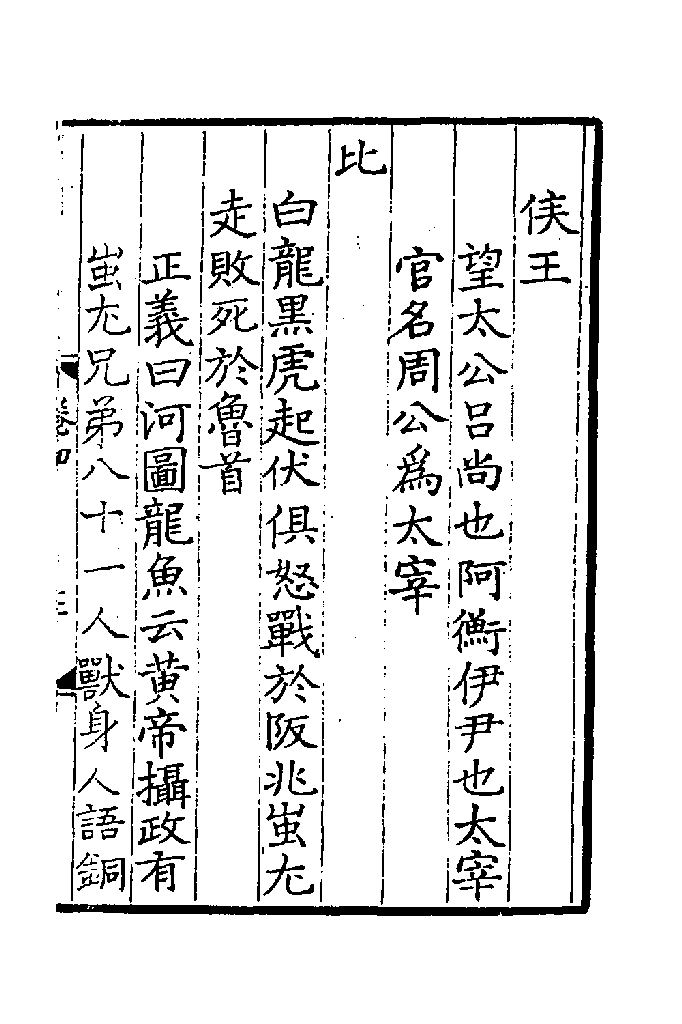 侯王
望太公呂尚也阿衡伊尹也太宰
官名周公爲太宰
比
白龍黒虎起伏俱怒戰於阪兆蚩尤
走敗死於魯首
正義曰河圖龍魚云黄帝攝政有
蚩尤兄弟八十一人獸身人語銅
卷四